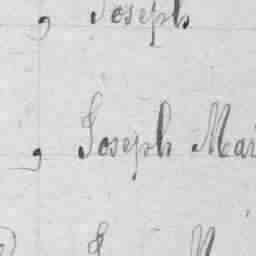 , Joseph
, Joseph Mar